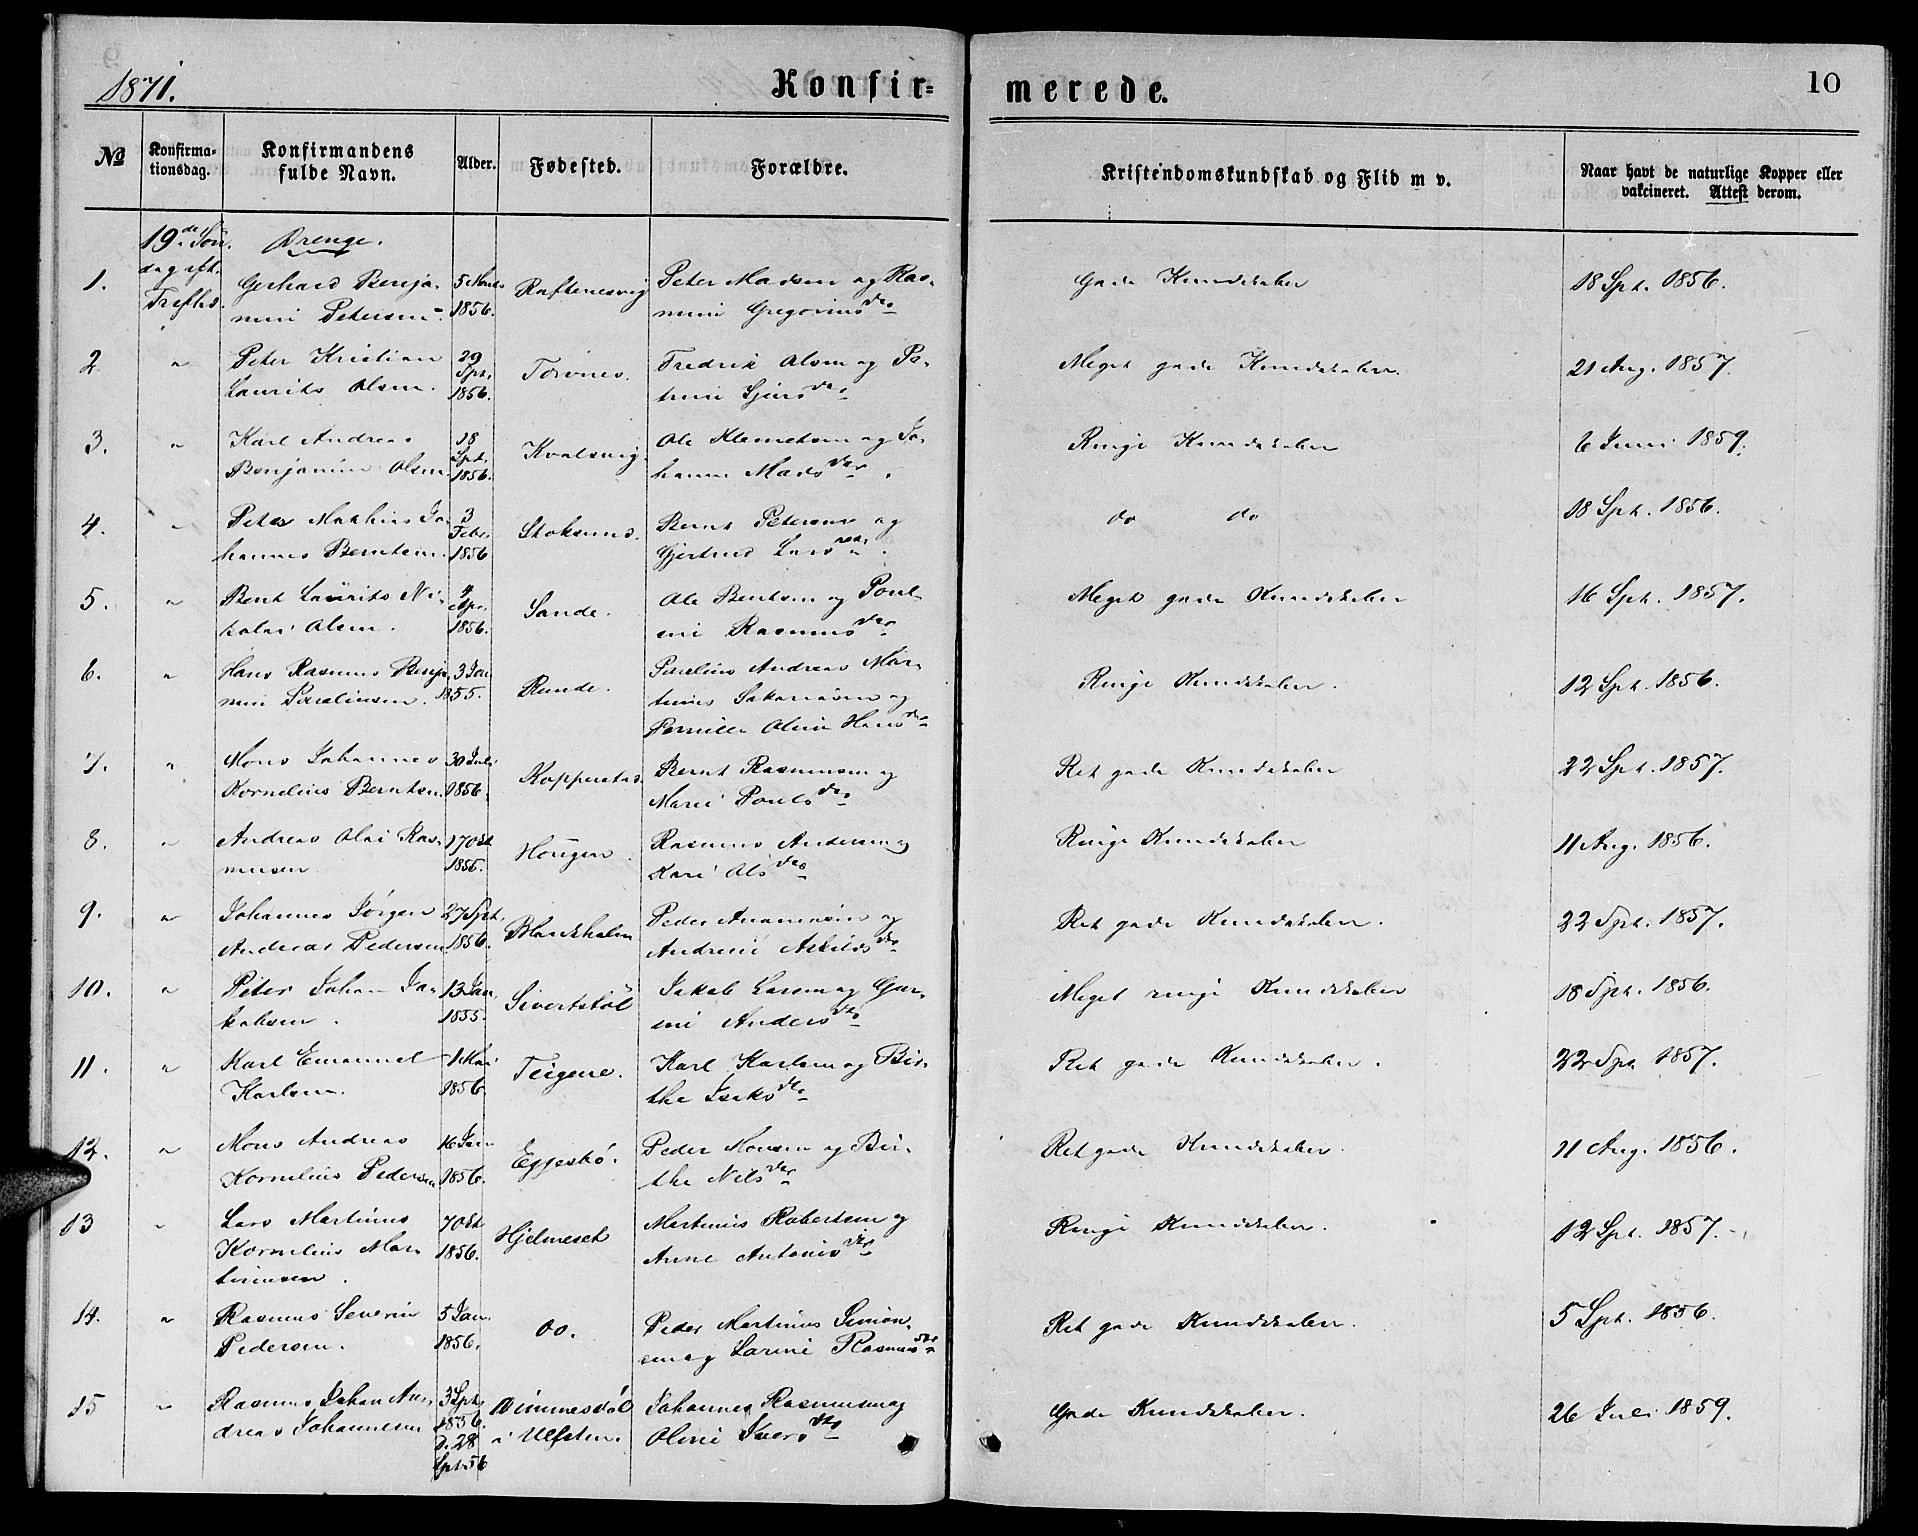 1871.
Konfir=
merede.
10
No
Konfirma-
tionsdag.
Konfirmandens
fulde Navn.
Alder.
Fødested.
Forældre.
Kristendomskundskab og Flid m v.
Naar havt de naturlige Kopper eller
vakcineret. Attest derom.
19de Søn-
dag eft.
Trefhd.
Drenge.
1.
Gerhard Benja-
mini Petersen
1856.
Raftenesvig
Peter Madsen og Ras-
mini Gregoriusdr
Gode Kundskaber
18 Spt. 1856.
2
"
Peter Kristian
Laurits Olsen.
29
Spt.
1856.
Torvnes.
Fredrik Olsen og Pe-
trine Sjursdr
Meget gode Kundskaber.
21 Aug. 1857.
3.
"
Karl Andreas
Benjamin Olsen
18
Spt.
1856.
Kvalsvig.
Ole Klemetsen og Jo-
hanne Madsdr.
Ringe Kundskaber
6 Juni 1859.
4.
"
Peter Mathias Jo-
hannes Berntsen.
3
Febr.
1856
Stoksund.
Bernt Petersen og
Gjertrud Larsdr.
do do
18 Spt. 1856.
5.
"
Bent Laurits Ni-
kolai Olsen.
Apr.
1856.
Sande.
Ole Bentsen og Poul-
ine Rasmusdr
Meget gode Kundskaber
16 Spt. 1857.
6.
"
Hans Rasmus Benja-
min Parelinsen.
3 Jan
1855.
Runde.
Parelius Andreas Mar-
tinus Sakariasen og
Pernille Oline Hansdr
Ringe Kundskaber.
12 Spt. 1856.
7.
"
Mons Johannes
Kornelius Berntsen.
30 Juli
1856.
Kopperstad
Bernt Rasmussen og
Marie Poulsdr
Ret gode Kundskaber
22 Spt. 1857.
8.
"
Andreas Olai Ras-
mussen.
17 Okt
1856.
Hougen.
Rasmus Andersen og
Kari Olsdr
Ringe Kundskaber
11 Aug. 1856.
9.
"
Johannes Jørgen
Andreas Pedersen
27 Spt.
1856.
Blankholm
Peder Ananiasen og
Andrine Askildsdr
Ret gode Kundskaber.
22 Spt. 1857.
10.
"
Peter Johan Ja-
kobsen.
13 Jan.
1855.
Sivertstøl
Jakob Larsen og Gur-
ine Andersdr
Meget ringe Kundskaber
18 Spt. 1856.
11.
"
Karl Emanuel
Karlsen.
1 Mai
1856.
Teigene.
Karl Karlsen og Bir-
the Isaksdr
Ret gode Kundskaber.
22 Spt. 1857.
12.
"
Mons Andreas
Kornelius Pedersen
16 Jan
1856.
Eggesbø.
Peder Monsen og Bir-
the Nilsdr
Ret gode Kundskaber.
11 Aug. 1856.
13
"
Lars Martinus
Kornelius Mar-
tinusen.
7 Okt
1856.
Hjelmeset
Martinus Robertsen og
Anne Antonisdr
Ringe Kundskaber.
12 Spt. 1857.
14.
"
Rasmus Severin
Pedersen.
5 Jan.
1856.
do.
Peder Martinus Simon-
sen og Larine Rasmusdr
Ret gode Kundskaber.
5 Spt. 1856.
15
"
Rasmus Johan An-
dreas Johannesen
3 Spt.
1856.
D. 28
Spt 56
Dimmesdøl
i Ulfsten.
Johannes Rasmussen og
Oline Iversdr
Gode Kundskaber.
26 Juli 1859.